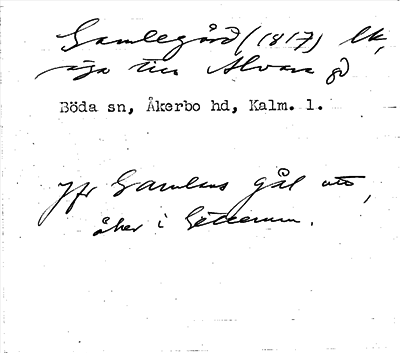 Gamlegård (1817) lk,
äga till Alvara gd
Böda sn, Åkerbo hd, Kalm. l.
Jfr Gamlens gål
åker i